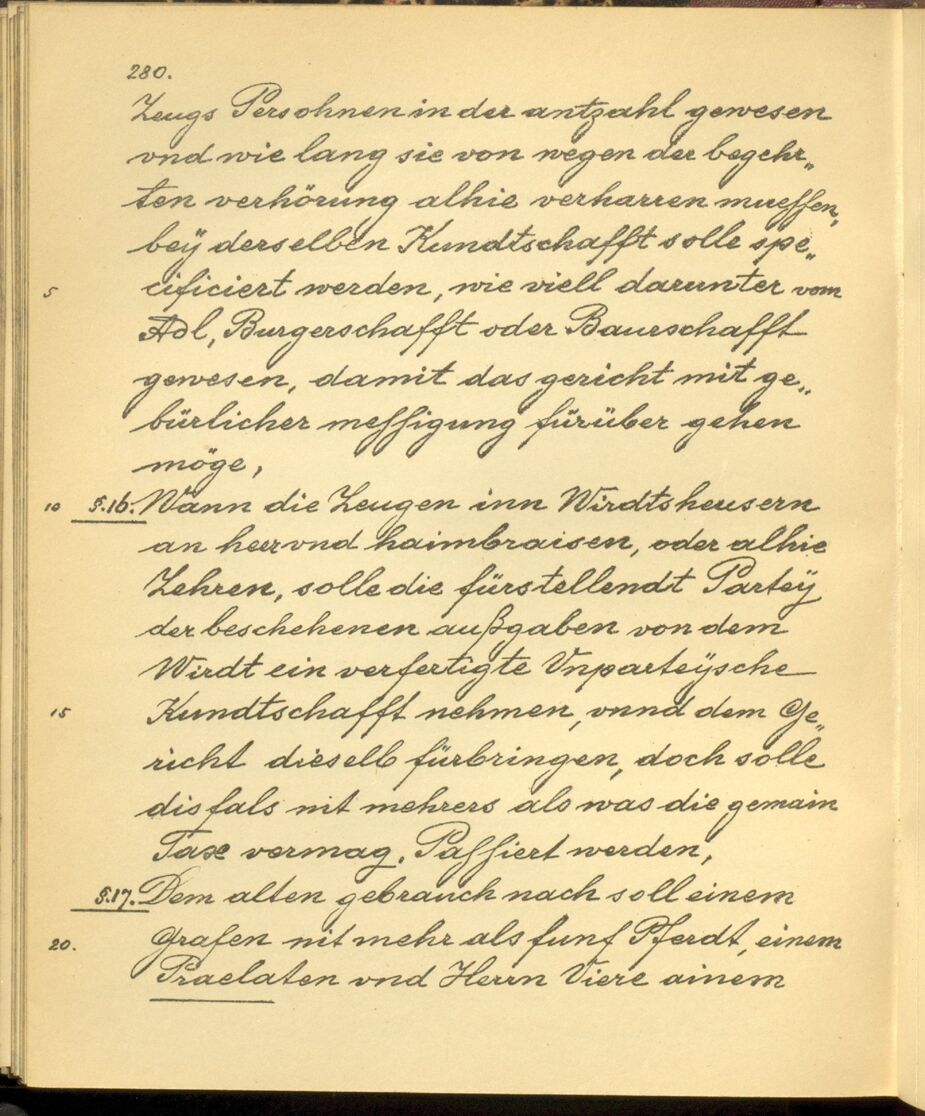 280.
Zeugs Persohnen in der antzahl gewesen
vnd wie lang sie von wegen der begehr„
ten verhörung alhie verharren mueſſen„
beÿ derselben Kundtschafft solle spe„
5 cificiert werden, wie viell darunter vom
Adl, Burgerschafft oder Baurschafft
gewesen, damit das gericht mit ge„
bürlicher meſſigung fürüber gehen
möge,
10 §.16. Wann die Zeugen inn Wirdtsheusern
an heer vnd haimbraisen, oder alhie
Zehren, solle die fürstellendt Parteÿ
der beschehenen außgaben von dem
Wirdt ein verfertigte Vnparteÿsche
15 Kundtschafft nehmen, vnnd dem Ge„
richt dieselb fürbringen, doch solle
disfals nit mehrers als was die gemain
Taxe vermag, Paſſiert werden,
§.17. Dem alten gebrauch nach soll einem
20. Grafen nit mehr als funf Pferdt, einem
Praelaten vnd Herrn Viere ainem